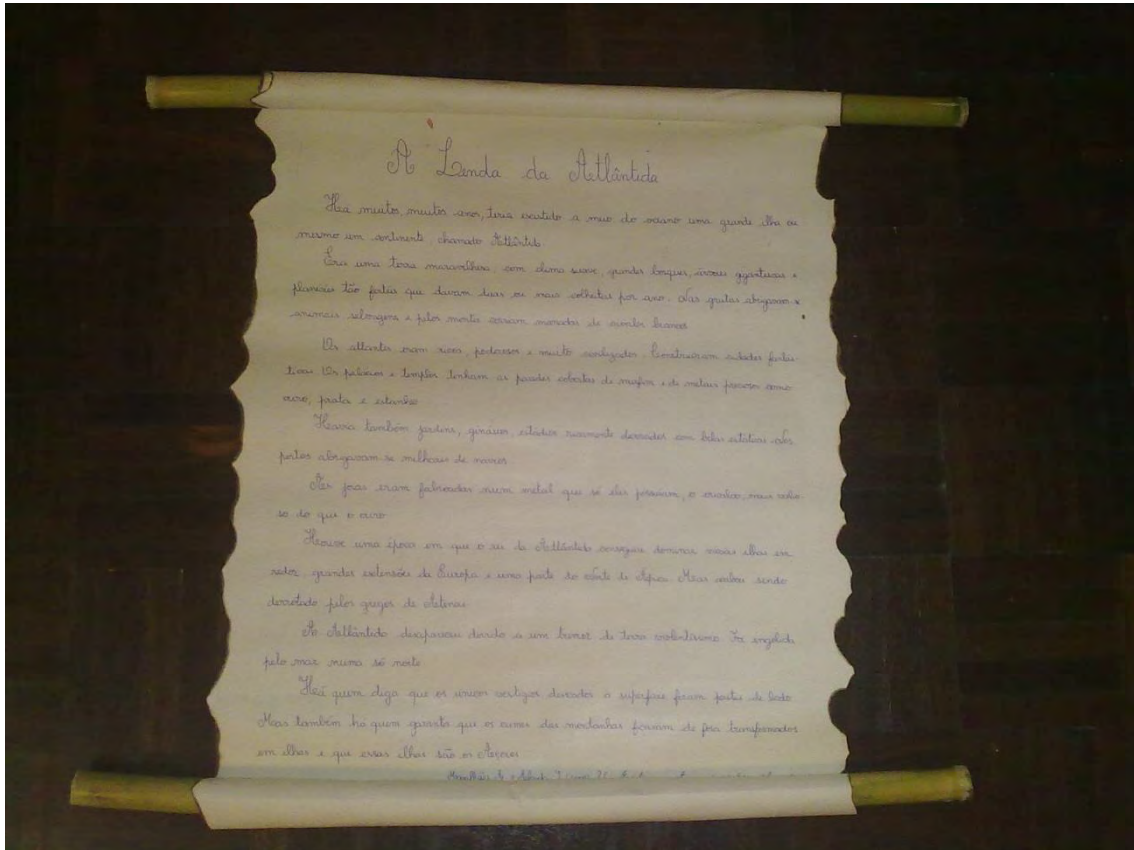 A Lenda da Atlântida
Há muitos, muitos anos, teria existido a meio do oceano uma grande ilha ou
mesmo um continente, chamado Atlântida
Era uma terra maravilhosa, com clima suave, grandes bosques, árvores gigantescas e
planícies tão férteis que davam duas ou mais colheitas por ano. Nas grutas abrigavam-se
animais selvagens e pelos montes corriam manadas de brancos
Os atlantes eram ricos, poderosos e muito civilizados. Construíram cidades fantás-
ticas. Os palácios e templos tinham as paredes cobertas de marfim e de metais preciosos como
ouro, prata e estanho
Havia também jardins, ginásios, estádios ricamente decorados com belas estátuas. Nos
portos abrigavam-se milhares de navios
As joias eram fabricadas num metal que só eles possuíam, o oricalco, mais valio-
so do que o ouro
Houve uma época em que o rei da Atlântida conseguiu dominar várias ilhas em
redor, grandes extensões da Europa e uma parte do Norte de África. Mas acabou sendo
derrotado pelos gregos de Atenas
A Atlântida desapareceu devido a um tremor de terra violentíssimo. Foi engolida
pelo mar numa só noite
Há quem diga que os únicos vestígios deixados à superfície foram portas de lodo
Mas também há quem garanta que os cumes das montanhas ficaram de fora transformados
em ilhas e que essas ilhas são os Açores